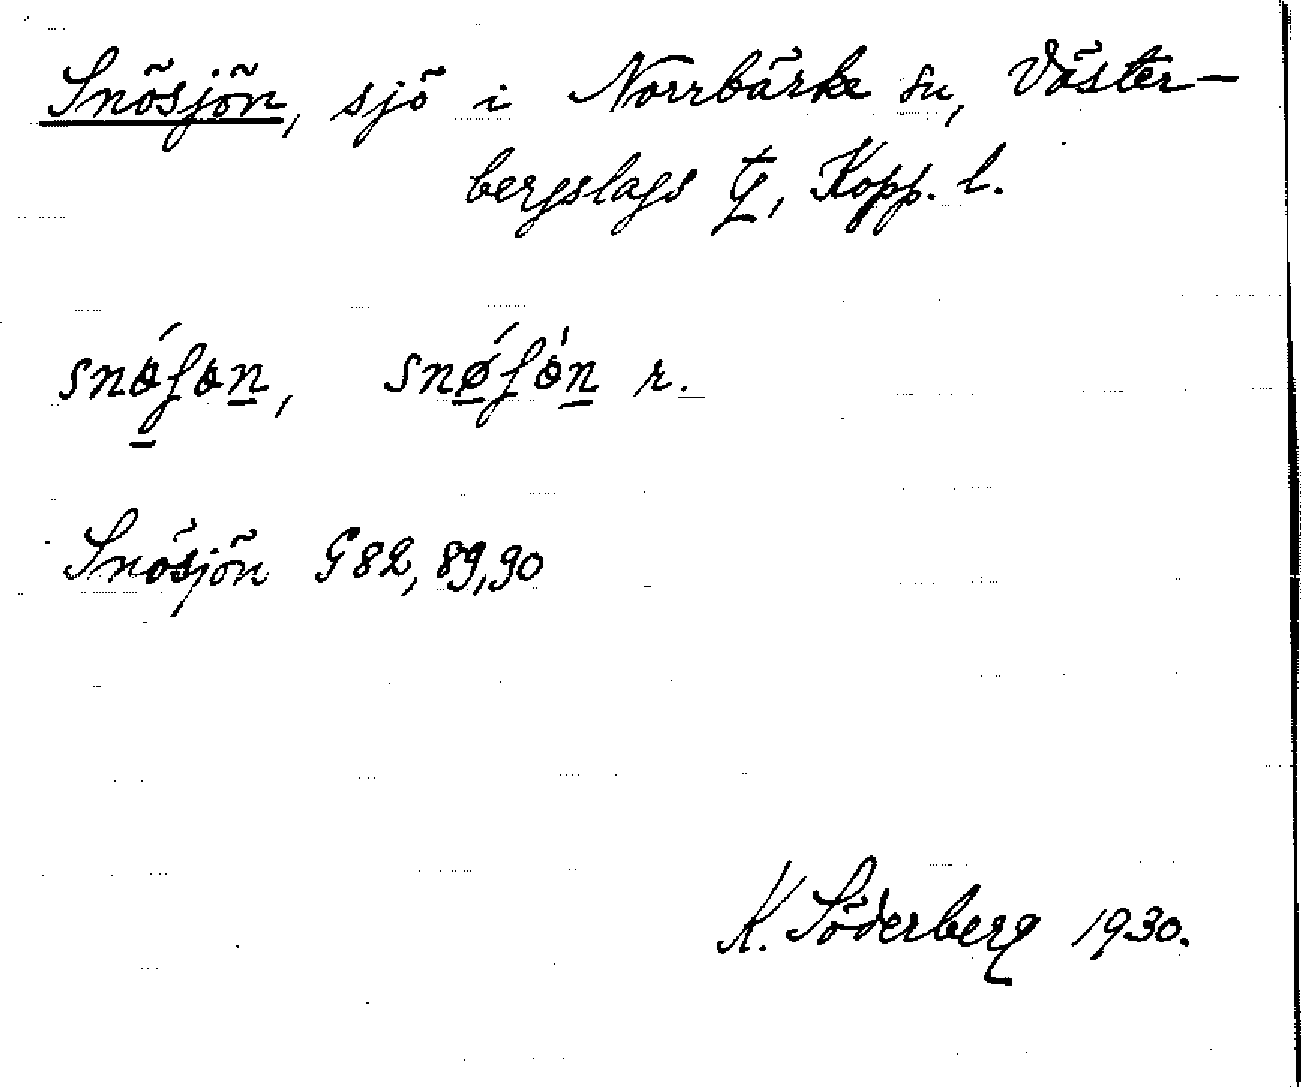 Snösjön, sjö i Norrbärke sn, Väster-
bergslags tg, Kopp. l.
r.
Snösjön G 82, 89, 90
K. Söderberg 1930.